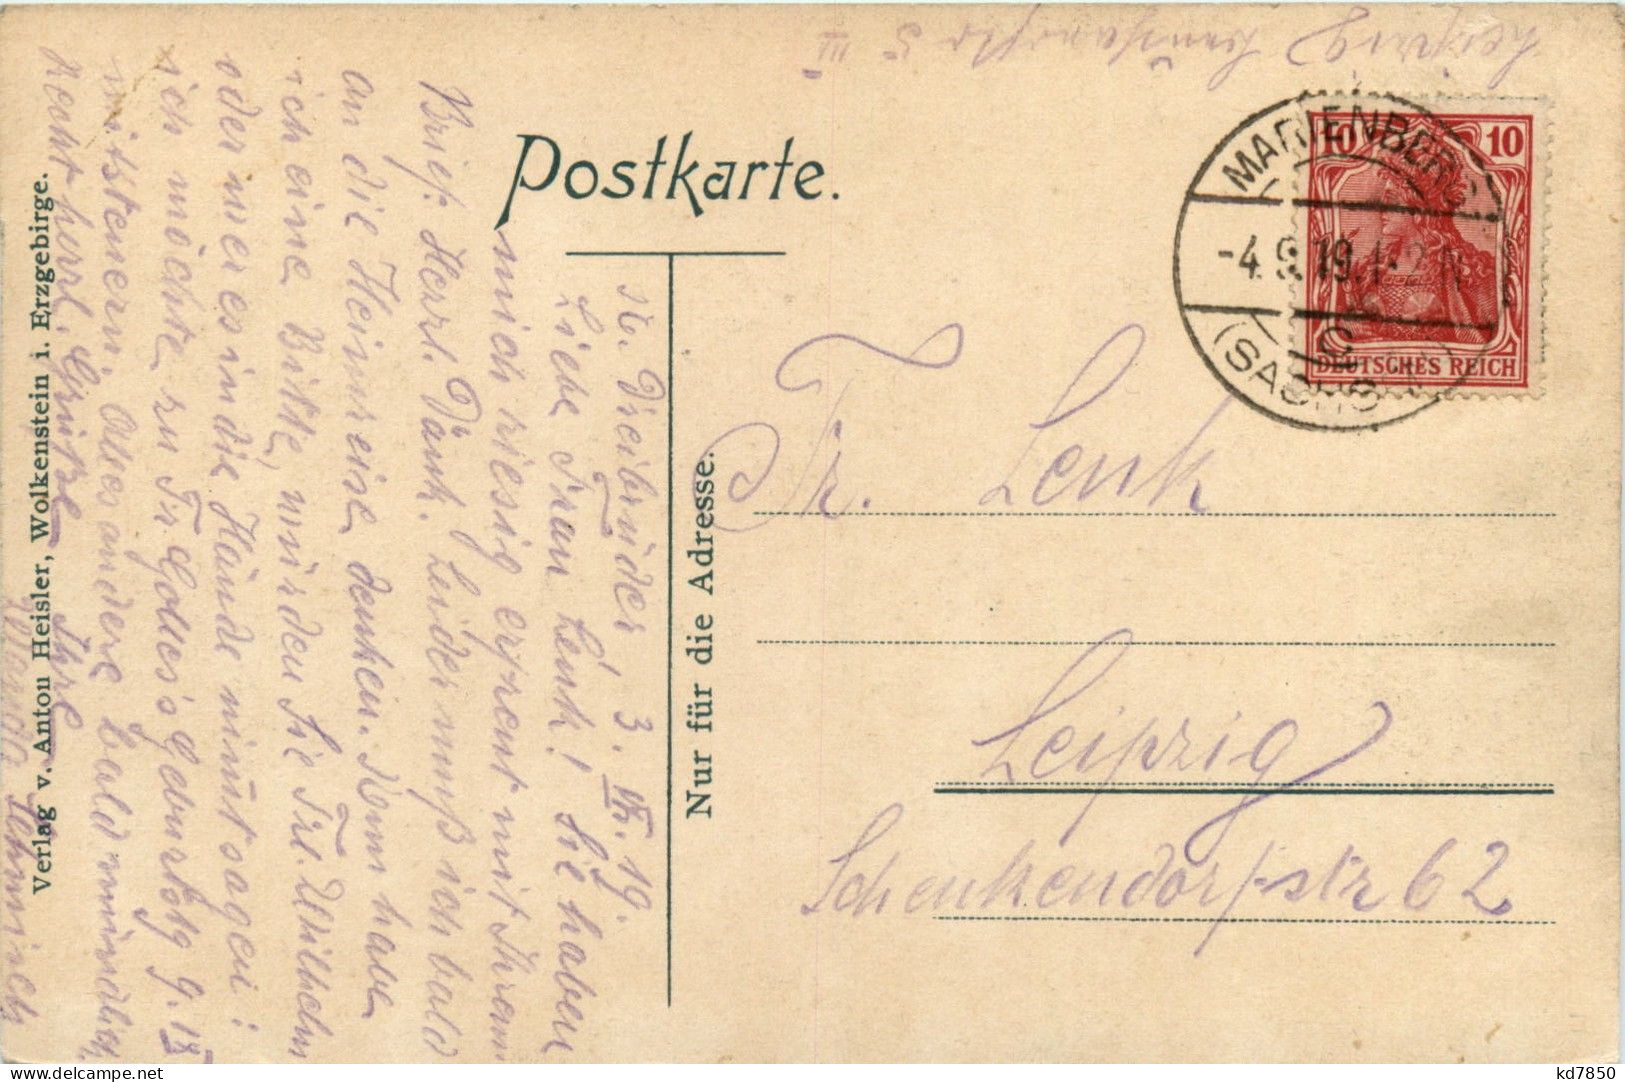 Postkarte.
Nur für die Adresse.
Verlag v. Anton Heisler, Wolkenstein i. Erzgebirge.
MARIENBERG
-4.9.19.1-2N
(SACHS
10 10
DEUTSCHES REICH
Fr. Lenk
Leipzig
Schenkendorfstr 62
Leipzig 5 III
Dreibrüder, 3. 19.
Liebe Frau Lenk! Sie haben
mich riesig erfreut mit Ihrem
Brief. Herzl. Dank. Leider muß ich bald
an die Heimreise denken. Nun habe
ich eine Bitte, würden Sie Frl. Wilhelm
oder wer es in die Hände nimmt sagen:
ich möchte zu Fr. Geburtstg
mitsteuern. Alles andere bald mündlich.
Recht herzl. Grüße Ihre
kd7850